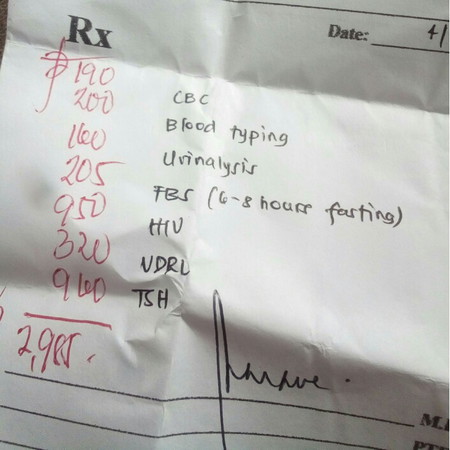 Rx
Date: 4/
₱ 190 CBC
200 Blood typing
160 Urinalysis
205 FBS (6-8 hours fasting)
950 HIV
320 VDRL
960 TSH
2,985.